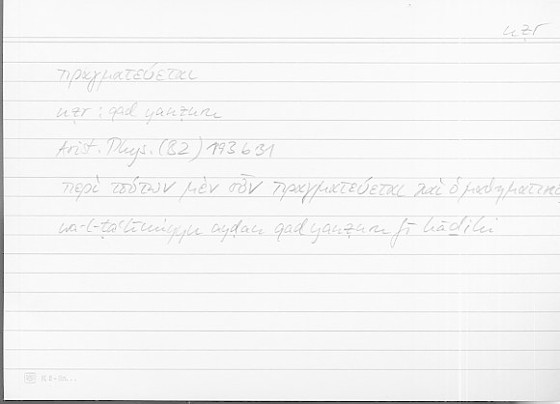 nẓr
πραγματεύεται
nẓr : qad yanẓuru
Arist. Phys. (B2) 193b31
περὶ τούτων μὲν οὖν πραγματεύεται καὶ ὁ μαθηματικὸ
wa-t-taʿlīmīyu ayḍan qad yanẓuru fī hāḏihi